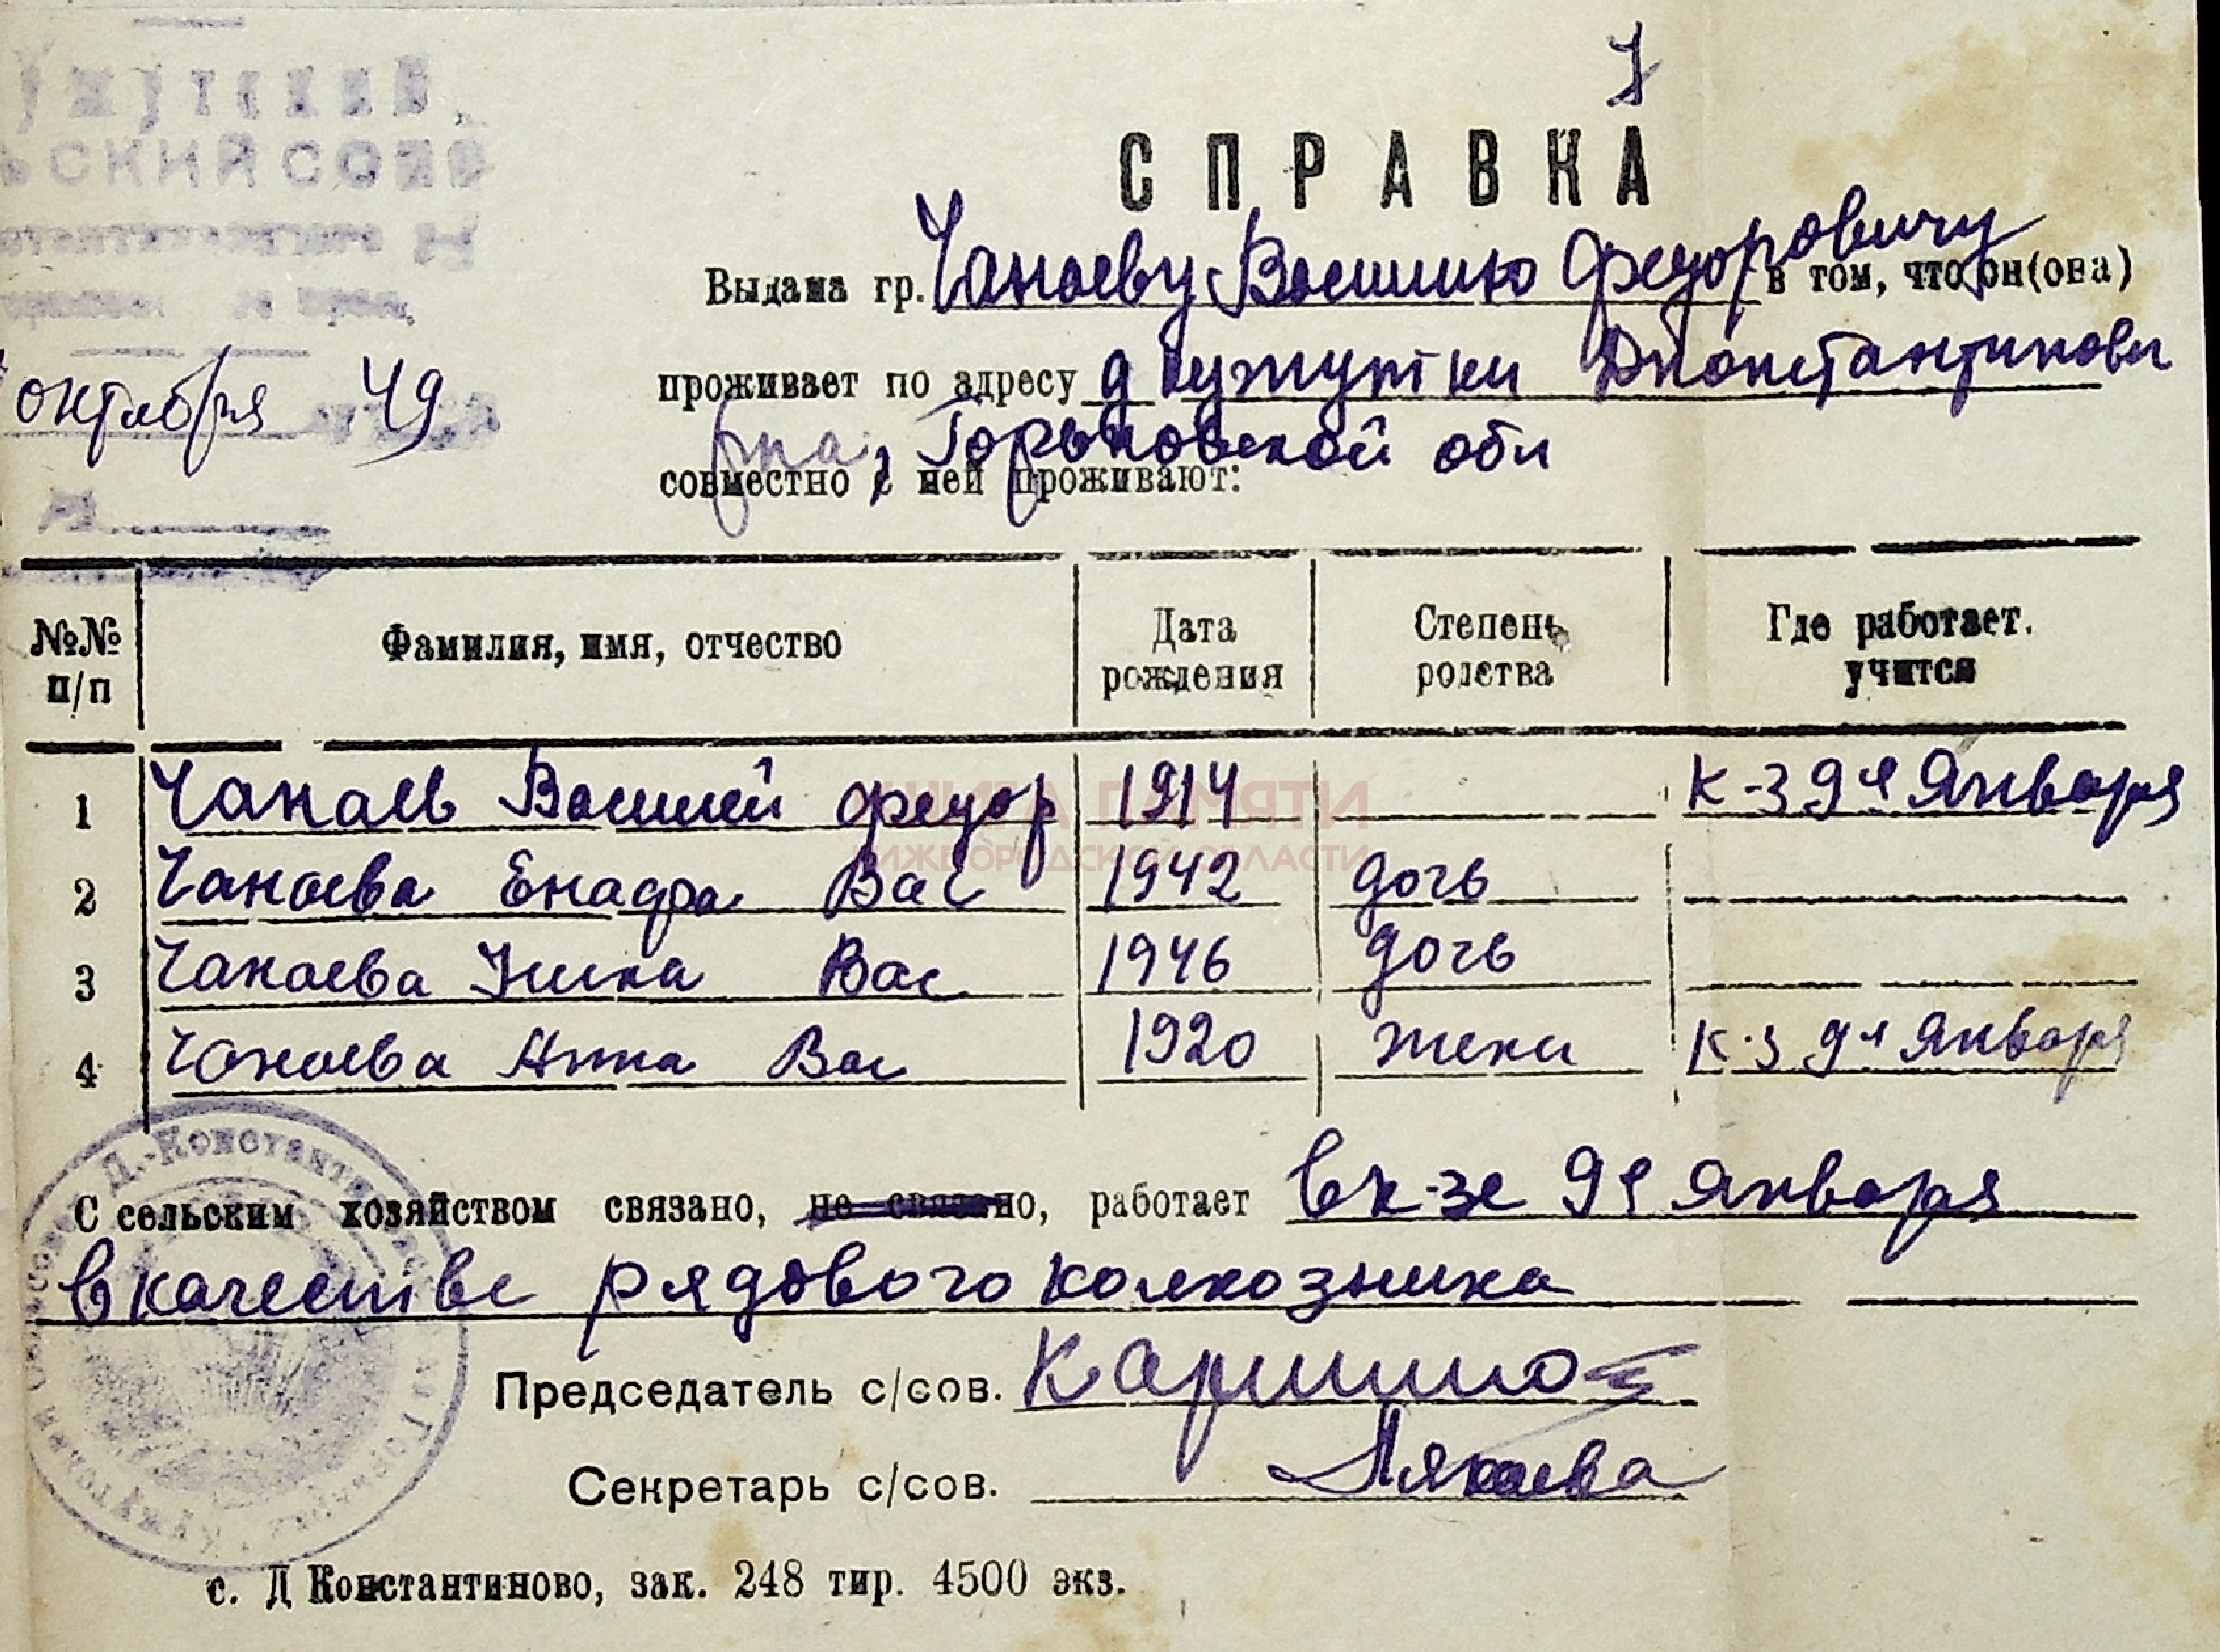 7
СПРАВКА
Выдана гр. Чанаеву Василию Федоровичу в том, что он(она)
проживает по адресу д Кужутки Дконстантиновс
рна, Горьковской обл
совместно с ней проживают:
октября 49
№№ п/п
Фамилия, имя, отчество
Дата рождения
Степень родства
Где работает. учится
1 Чанаев Василий Федор 1914 К-з 9ч Января
2 Чанаева Енафа Вас 1942 дочь
3 Чанаева Нина Вас 1946 дочь
4 Чанаева Анна Вас 1920 жена К-з 9ч Января
С сельским хозяйством связано, не связано, работает в к-зе 9ч Января
в качестве рядового колхозника
Председатель с/сов.
Секретарь с/сов.
с. Д Константиново, зак. 248 тир. 4500 экз.
КНИГА ПАМЯТИ
НИЖЕГОРОДСКОЙ ОБЛАСТИ